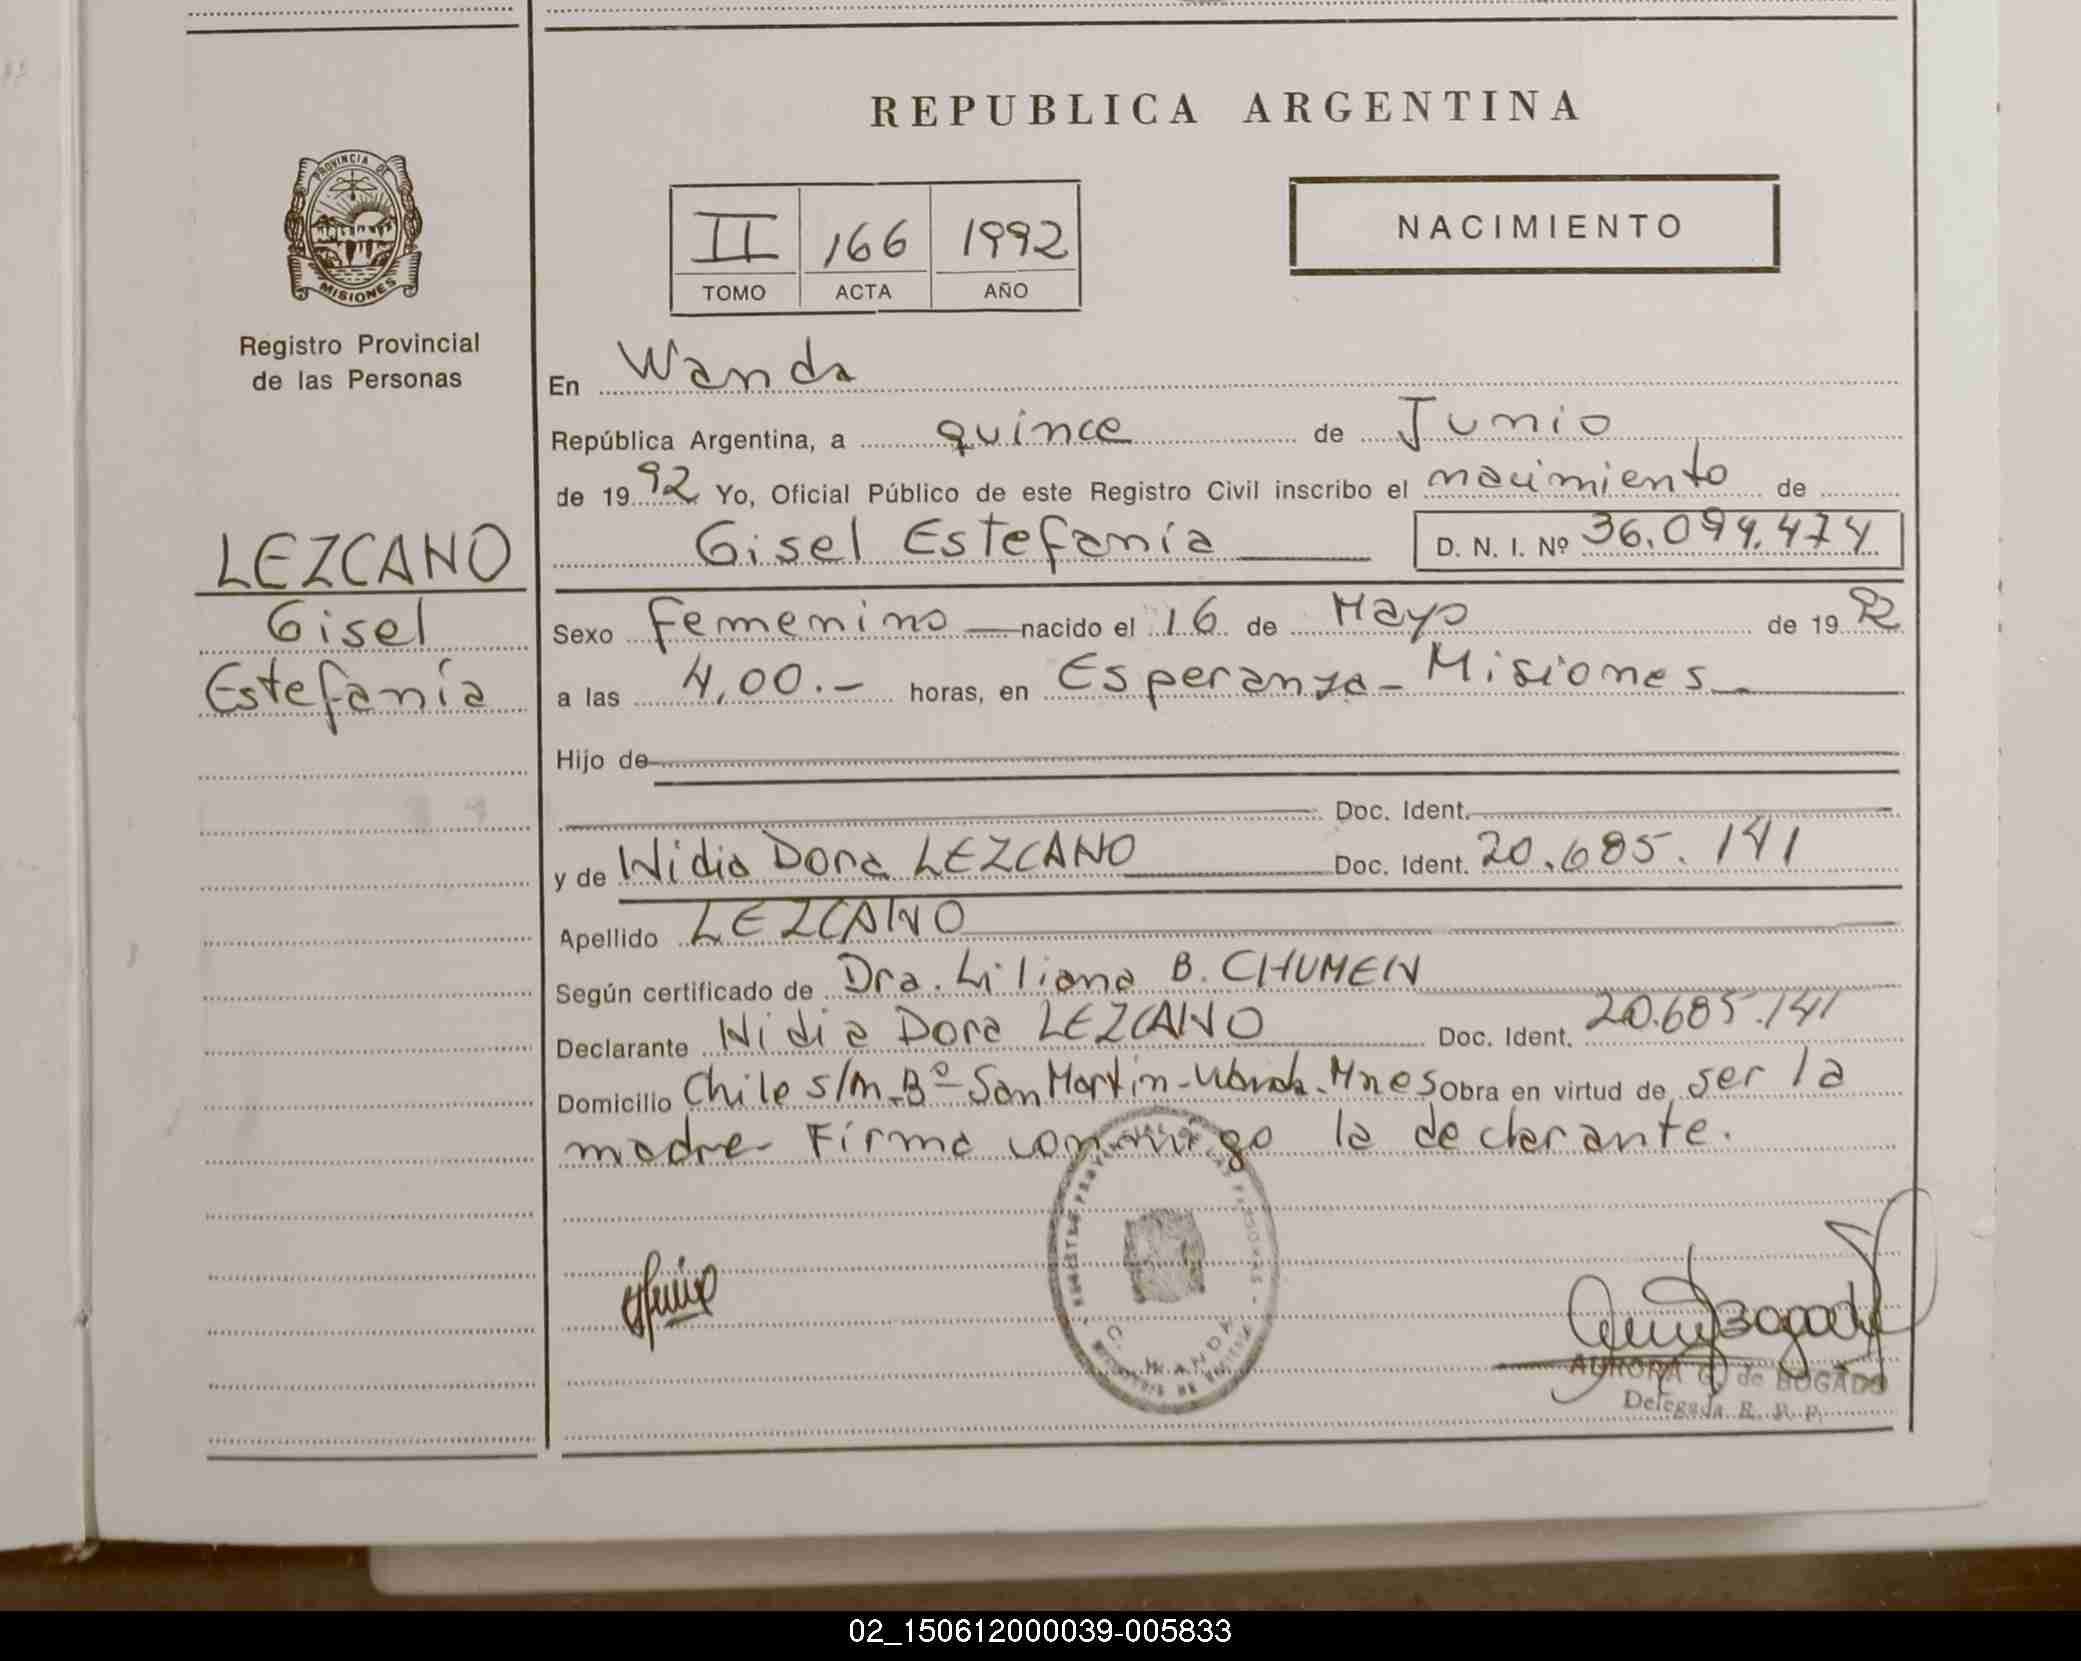 REPUBLICA ARGENTINA
PROVINCIA DE
MISIONES
Registro Provincial
de las Personas
II 166 1992
TOMO ACTA AÑO
NACIMIENTO
En Wanda
República Argentina, a quince de Junio
de 1992 Yo, Oficial Público de este Registro Civil inscribo el nacimiento de
Gisel Estefanía D. N. I. Nº 36.094.474
LEZCANO
Gisel
Estefanía
Sexo femenino nacido el 16 de Mayo de 1992
a las 4,00.- horas, en Esperanza - Misiones
Hijo de
Doc. Ident.
y de Nidia Dora LEZCANO Doc. Ident. 20.685.141
Apellido LEZCANO
Según certificado de Dra. Liliana B. CHUMEN
Declarante Nidia Dora LEZCANO Doc. Ident. 20.685.141
Domicilio Chile s/n. Bº San Martín - Wanda. Mnes Obra en virtud de ser la
madre Firma conmigo la declarante.
WANDA
Bogado
AURORA G. de BOGADO
Delegada R. P. P.
02_150612000039-005833